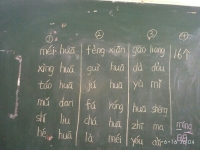 ① ② ③
méi huā fèng xiān gāo liang 16个
xìng huā guì huā dà dòu
táo huā jú huā yù mǐ
mǔ dan fú róng huā shēng
shí liu chá huā zhī ma
hé huā là méi yóu